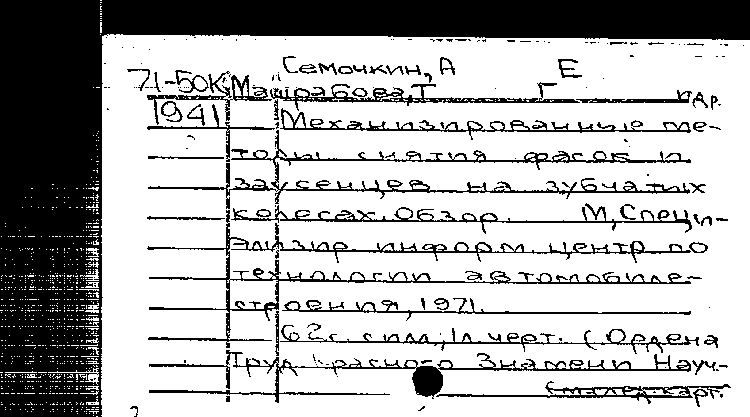 Семочкин, А Е
71-50К Машрабова, Т Г и др.
1941 Механизированные ме-
тоды снятия фасок и
заусенцев на зубчатых
колесах. Обзор. М, Специ-
ализир. информ. центр по
технологии автомобиле-
строения, 1971.
62 с. с илл.; 1 л. черт. (Ордена
Труд Красного Знамени Науч-
(см. след. карт.